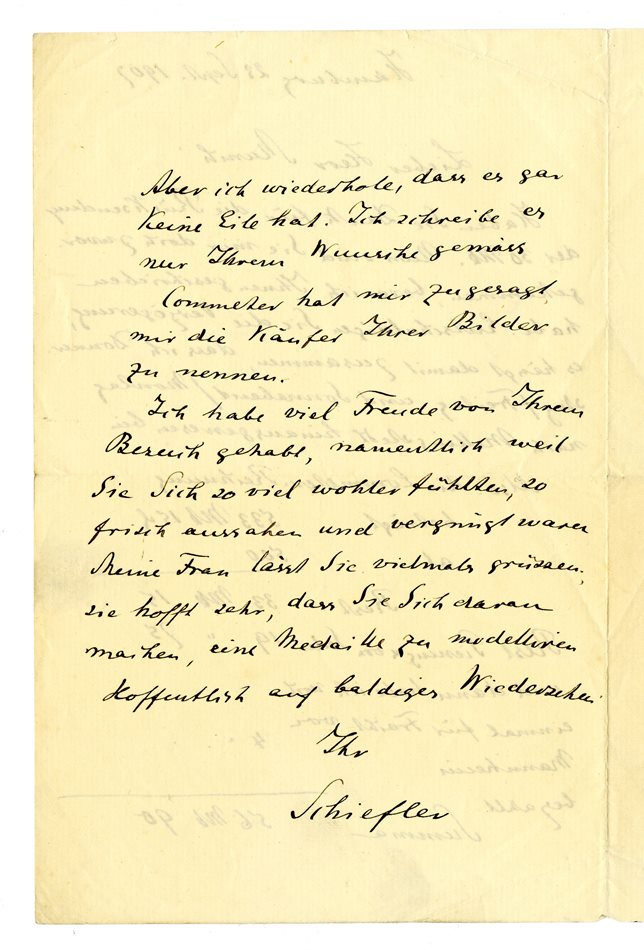 Aber ich wiederhole, dass es gar
keine Eile hat. Ich schreibe es
nur Ihrem Wunsche gemäss
Commeter hat mir zugesagt
mir die Käufer Ihrer Bilder
zu nennen.
Ich habe viel Freude von Ihrem
Besuch gehabt, namentlich weil
Sie Sich so viel wohler fühlten, so
frisch aussahen und vergnügt waren
Meine Frau lässt Sie vielmals grüssen;
sie hofft sehr, dass Sie Sich daran
machen, eine Medaille zu modelliren
Hoffentlich auf baldiges Wiedersehen
Ihr
Schiefler